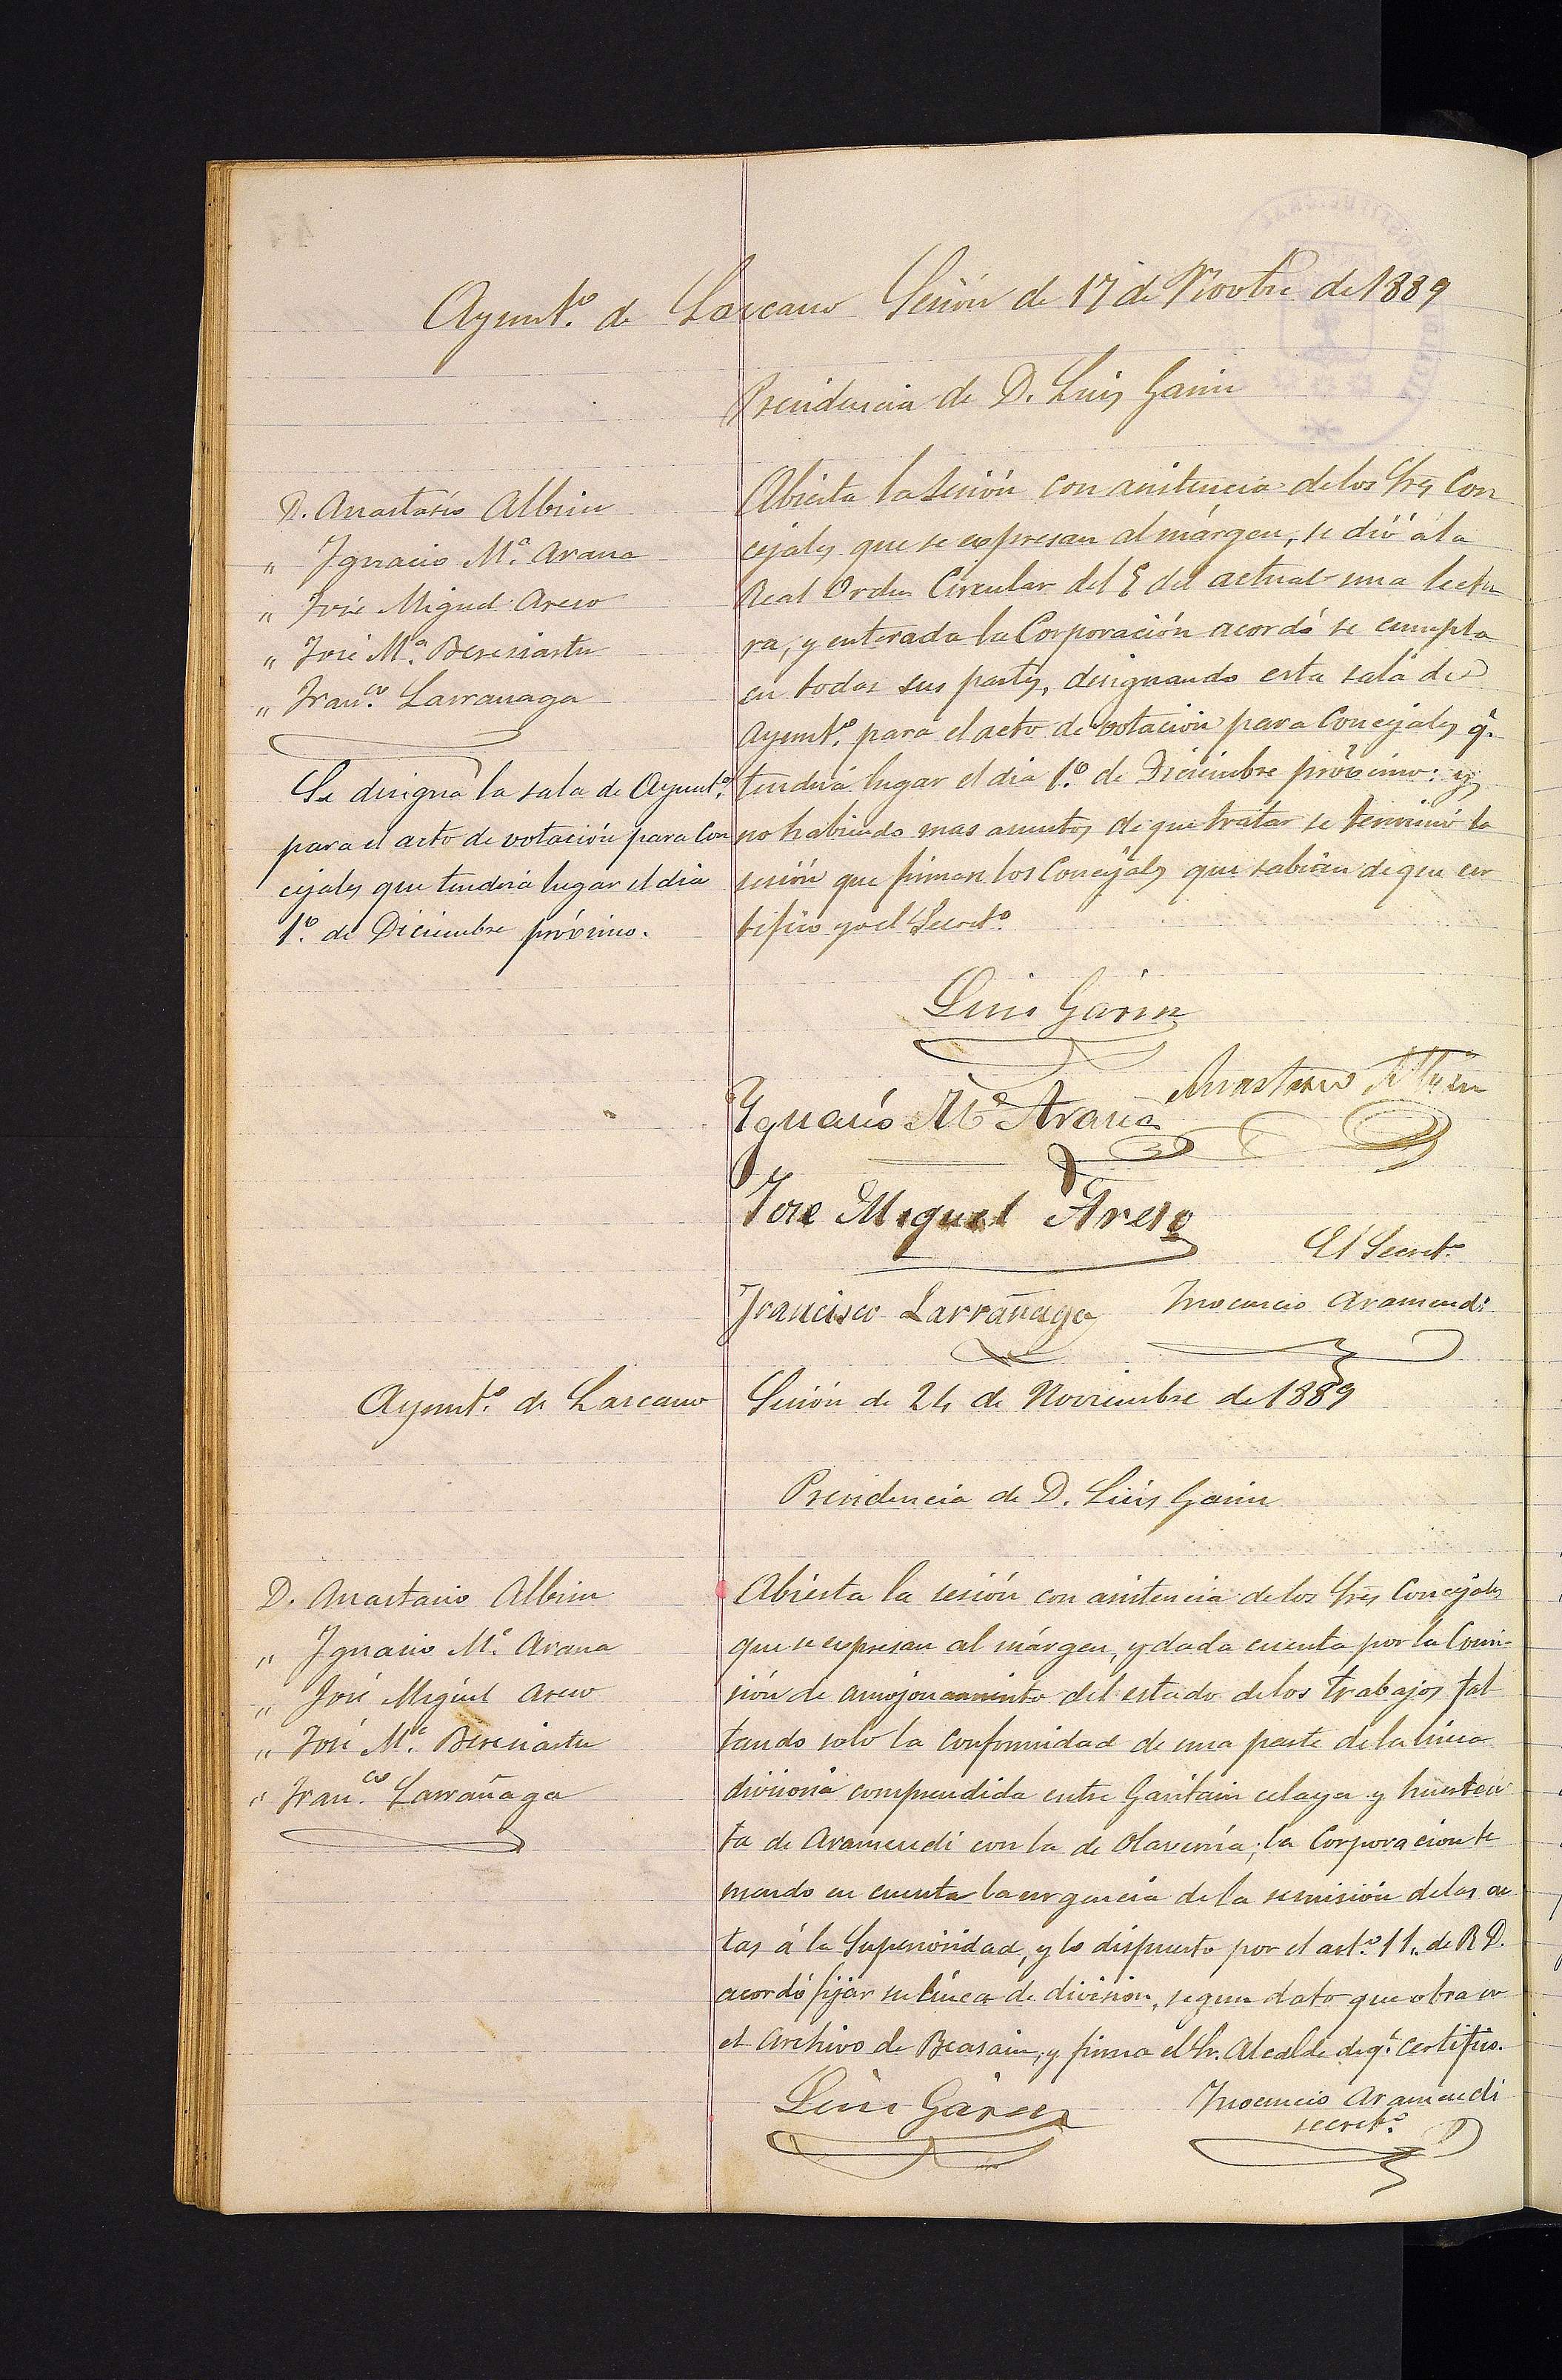 Ayunt.º de Lazcano Sesión de 17 de Novbre de 1889
Presidencia de D. Luis Garin
D. Anastasio Albisu
" Ignacio M.ª Arana
" José Miguel Areso
" José M.ª Beresiartu
" Fran.co Larrañaga
Se designa la sala de Ayunt.º
para el acto de votación para Con
cejales que tendrá lugar el dia
1.º de Diciembre próximo.
Abierta la sesión con asistencia de los Sres Con
cejales que se expresan al márgen, se dió á la
Real Orden Circular del del actual una lectu
ra, y enterada la Corporación acordó se cumpla
en todas sus partes, designando esta sala de
Ayunt.º para el acto de votación para Concejales q.e
tendrá lugar el dia 1.º de Diciembre próximo: y
no habiendo mas asuntos de que tratar se terminó la
sesión que firman los Concejales que sabian de que cer
tifico yo el Secret.º
Luis Garin
Anastasio Albisu
Ygnacio M.ª Arana
Jose Miguel Areso
El Secret.º
Francisco Larrañaga Inocencio Aramendi
Ayunt.º de Lazcano Sesión de 24 de Noviembre de 1889
Presidencia de D. Luis Garin
D. Anastasio Albisu
" Ignacio M.ª Arana
" José Miguel Areso
" José M.ª Beresiartu
" Fran.co Larrañaga
Abierta la sesión con asistencia de los Sres Concejales
que se expresan al márgen, y dada cuenta por la Comi-
sión de amojonamiento del estado de los trabajos fal
tando solo la conformidad de una parte de la línea
divisoria comprendida entre Garitain celaya y
ta de Aramendi con la de Olaverria; la Corporacion te
niendo en cuenta la urgencia de la remisión de las ac
tas á la Superioridad, y lo dispuesto por el art.º 11. de R D.
acordó fijar su línea de division, segun dato que obra en
el Archivo de Beasain, y firma el Sr. Alcalde de q.e certifico.
Luis Garin
Inocencio Aramendi
secret.º